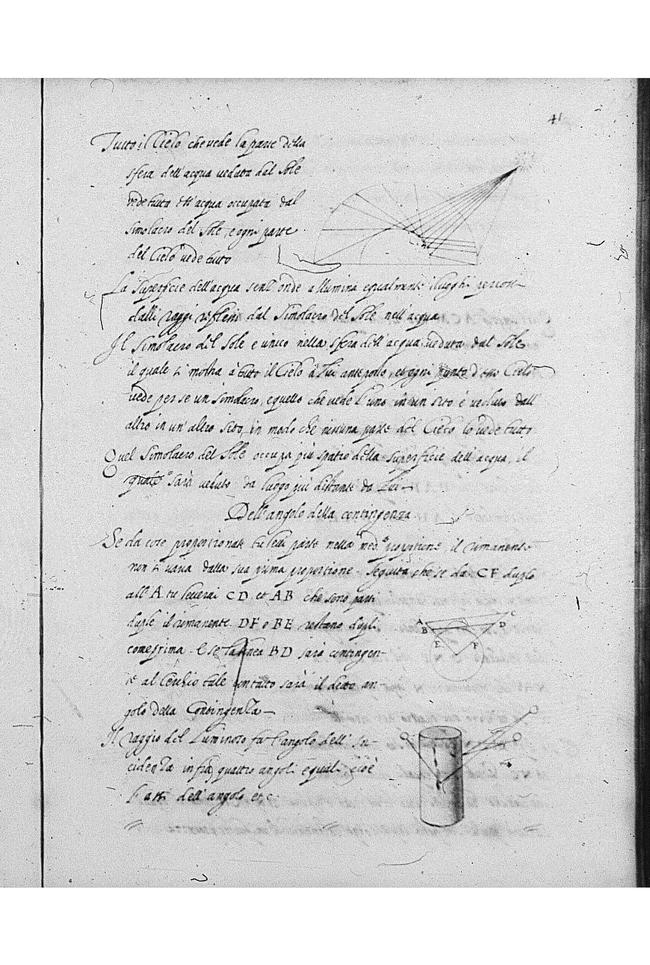 41
Tutto il Cielo che vede la parte della
sfera dell'acqua veduta dal Sole
vede tutta acqua occupata dal
simolacro del Sole, e ogni parte
del Cielo vede tutto
La Superficie dell'acqua senz'onde allumina equalmente i luoghi percossi
dalli raggi reflessi dal Simolacro del Sole nell'acqua
Il Simolacro del Sole è unico nella sfera dell'acqua veduta dal Sole
il quale si mostra à tutto il Cielo à lui anteposto, et ogni punto d'esso Cielo
vede per se un simolacro, e quello che vede l'uno in un sito è veduto dall'
altro in un'altro sito, in modo che nissuna parte del Cielo lo vede tutto
Quel Simolacro del Sole occupa più spatio della superficie dell'acqua, il
quale sarà veduto da luogo più distante da lui
Dell'angolo della contingenza
Se da cose proportionate tu levi parte nella med.ª proportione, il rimanente
non si varia dalla sua prima proportione. Seguita che se da CF duplo
all'A tu leverai CD et AB che sono parti
duple il rimanente DF e BE restano dupli
come prima. E se la linea BD sarà contingen-
te al Cerchio tale contatto sarà il detto an-
golo della Contingenza
Il raggio del Luminoso fa l'angolo dell'In-
cidenza infra quattro angoli equali cioè
Fatti dell'angolo etc.
A B C D E F